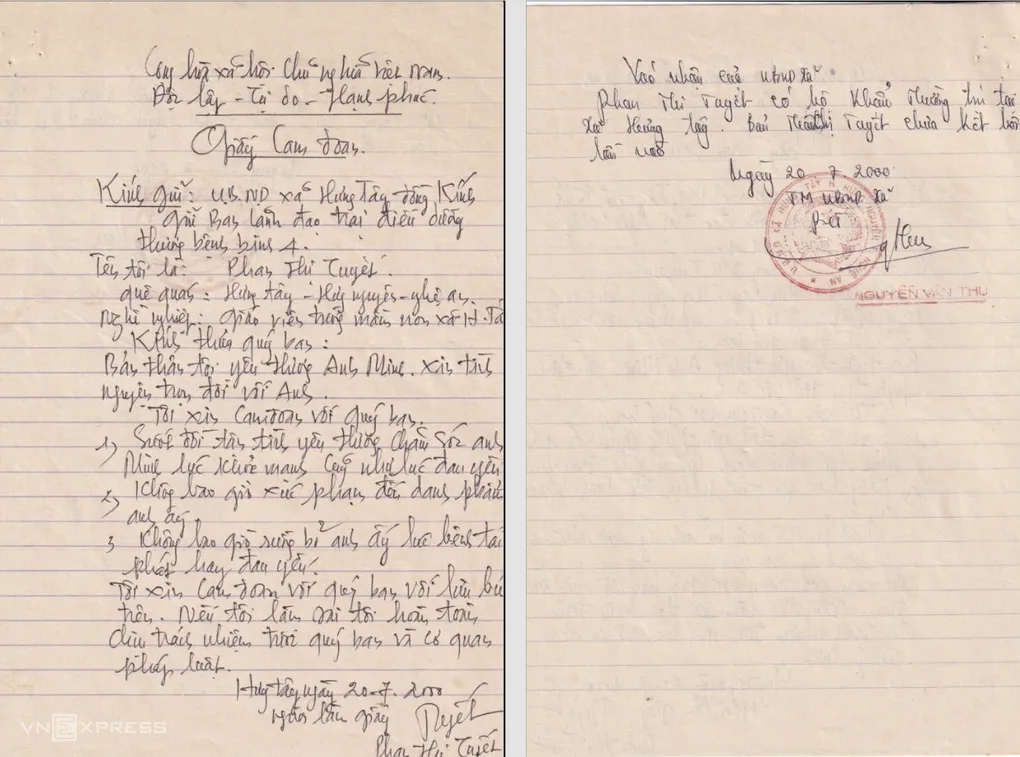 Cộng hòa xã hội chủ nghĩa Việt Nam.
Độc lập - Tự do - Hạnh phúc.
Giấy Cam đoan.
Kính gửi: UBND xã Hưng Tây đồng Kính
gửi Ban lãnh đạo trại điều dưỡng
thương bệnh binh 4.
Tên tôi là: Phan Thị Tuyết.
quê quán: Hưng Tây - Hưng nguyên - nghệ an.
Nghề nghiệp: giáo viên trường mầm non xã H. Tâ
Kính thưa quý ban:
Bản thân tôi yêu thương Anh Minh. xin tình
nguyện trọn đời với Anh.
Tôi xin Cam đoan với quý ban.
1) Suốt đời tận tình yêu thương chăm sóc anh
Minh lúc khỏe mạnh cũng như lúc đau yếu
2) Không bao giờ xúc phạm đến danh phẩm
anh ấy.
3 Không bao giờ ruồng bỏ anh ấy lúc bệnh tái
phát hay đau yếu.
Tôi xin Cam đoan với quý ban với lời hứa
trên. Nếu tôi làm sai tôi hoàn toàn
chịu trách nhiệm trước quý ban và cơ quan
pháp luật.
Hưng tây ngày 20-7-2000
người làm giấy Tuyết
Phan Thị Tuyết
VNEXPRESS
Xác nhận của UBND xã
Phan Thị Tuyết có hộ khẩu thường trú tại
xã Hưng Tây. Bản thân chị Tuyết chưa kết hôn
lần nào
Ngày 20-7-2000
TM UBND xã
NGUYỄN VĂN THU